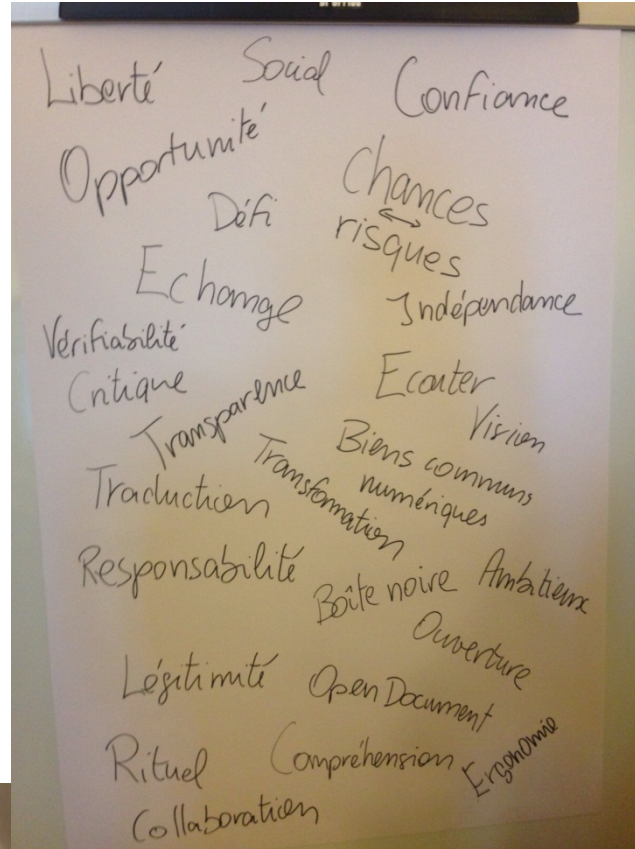 Liberté
Social
Confiance
Opportunité
Défi
Chances
↔
risques
Echange
Indépendance
Vérifiabilité
Critique
Ecouter
Transparence
Vision
Biens communs
numériques
Traduction
Transformation
Responsabilité
Boîte noire
Ambitieux
Ouverture
Légitimité
OpenDocument
Rituel
Compréhension
Ergonomie
Collaboration